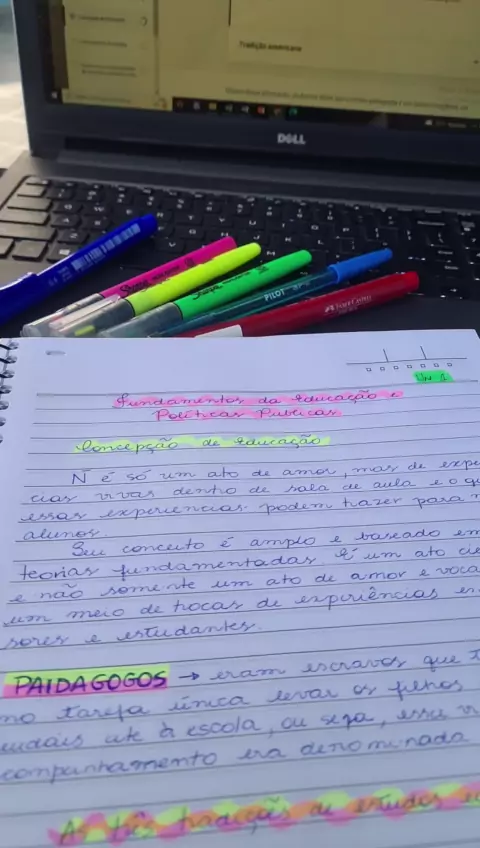 Tradição americana
DELL
Sharpie
Sharpie
PILOT
FABER-CASTELL
Un 1
Fundamentos da Educação e
Políticas Públicas
Concepção de Educação
N é só um ato de amor, mas de expe
cias vivas dentro de sala de aula e o q
essas experiências podem trazer para
alunos.
Seu conceito é amplo e baseado em
teorias fundamentadas. É um ato cie
e não somente um ato de amor e voca
um meio de trocas de experiências en
sores e estudantes.
PAIDAGOGOS → eram escravos que t
no tarefa única levar os filhos
até à escola, ou seja, esse
companhamento era denominada
As três tradições de estudos